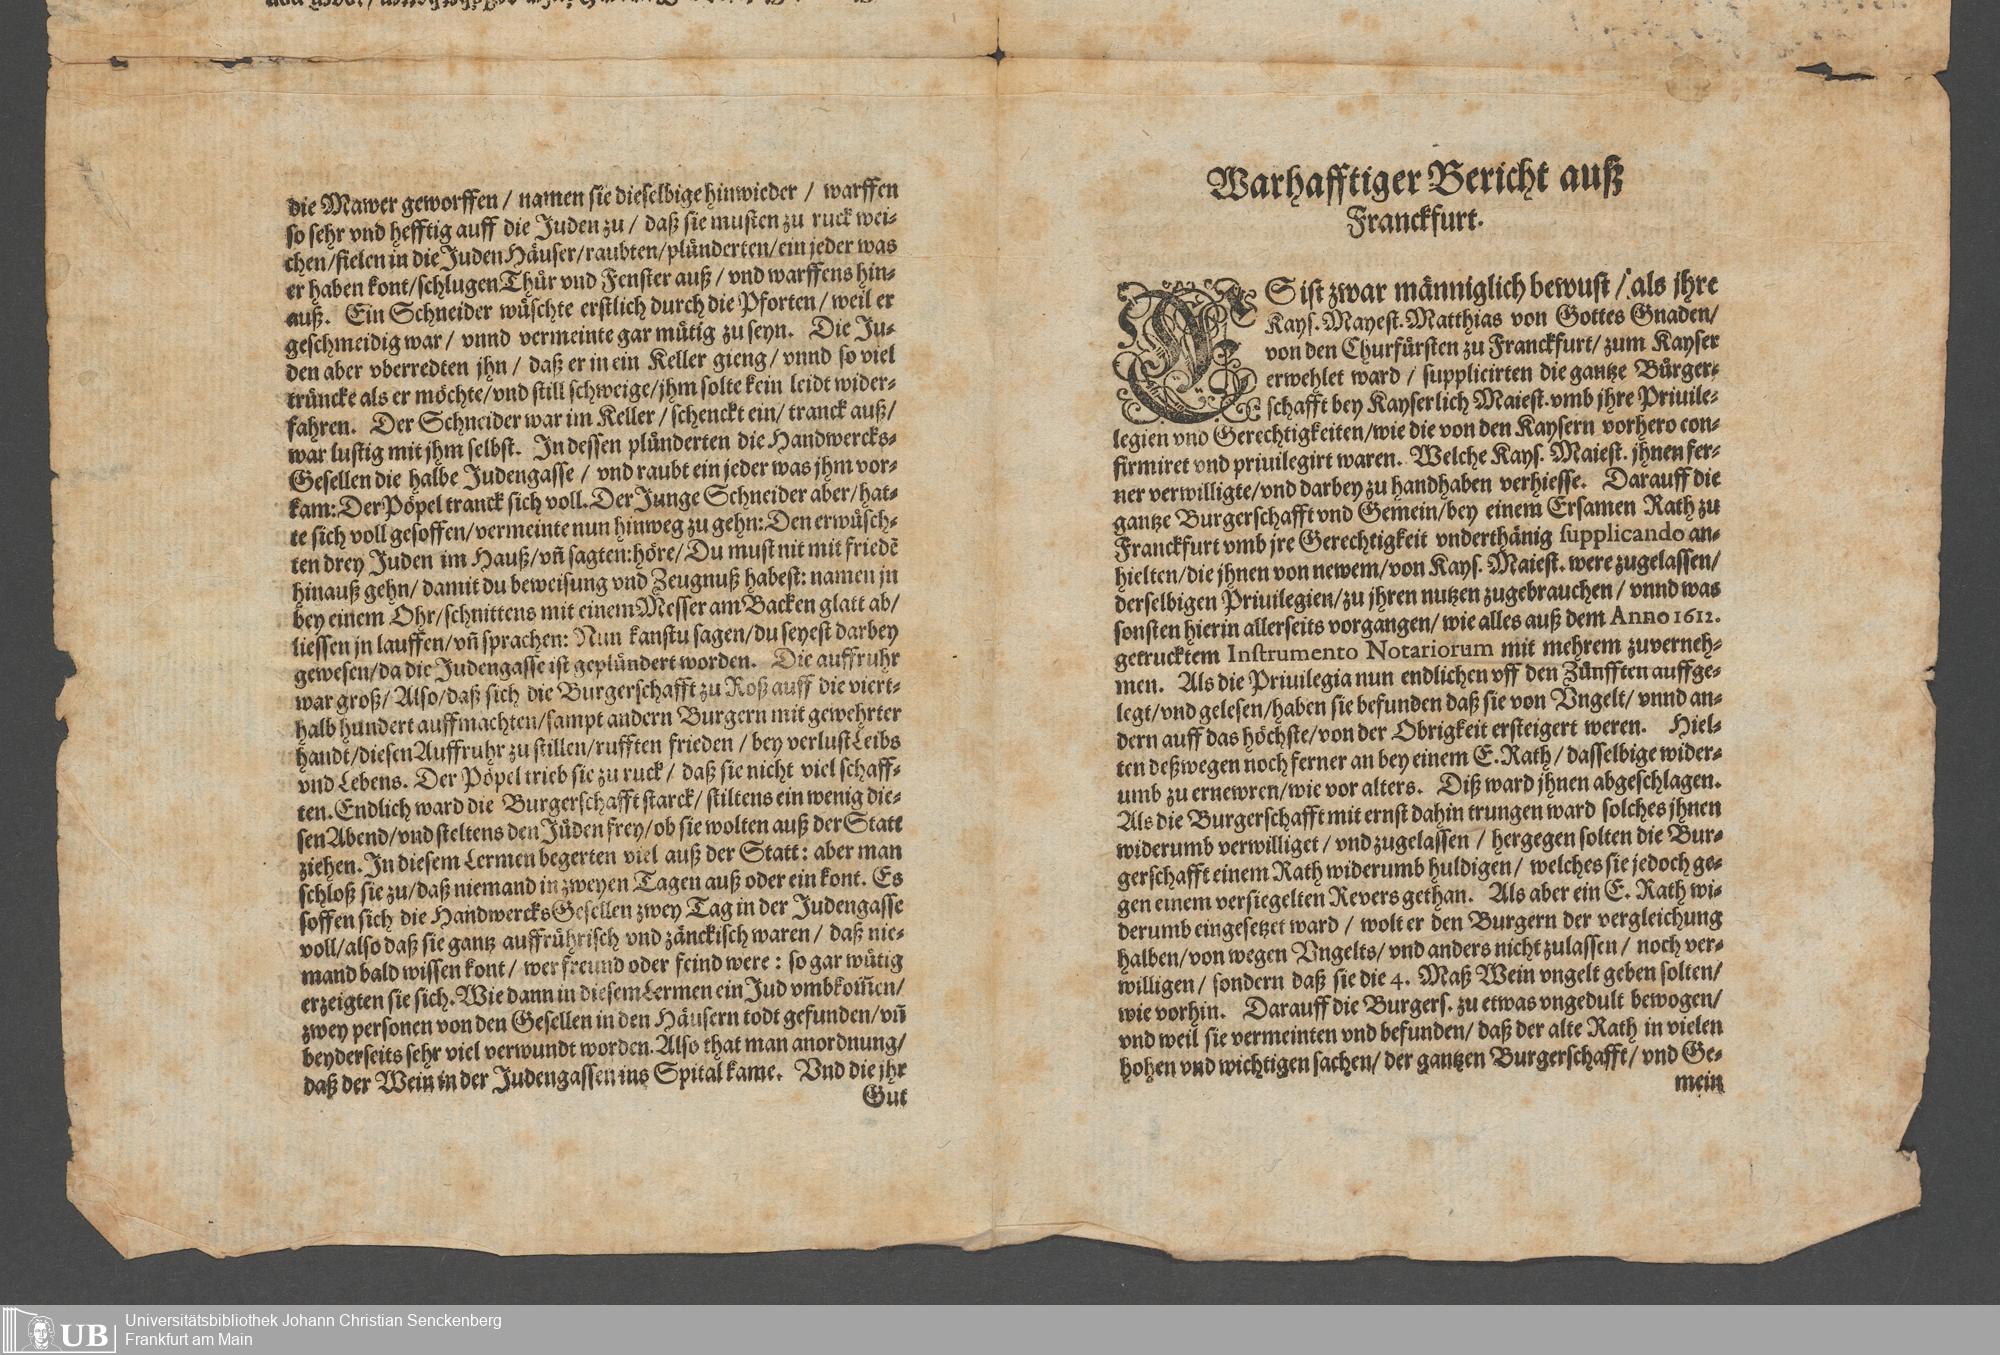 die Mawer geworffen / namen sie dieselbige hinwieder / warffen
so sehr vnd hefftig auff die Juden zu / daß sie musten zu ruck wei-
chen/fielen in die Juden Häuser/raubten/plünderten/ein jeder was
er haben kont/schlugen Thür vnd Fenster auß / vnd warffens hin-
auß. Ein Schneider wüschte erstlich durch die Pforten / weil er
geschmeidig war / vnnd vermeinte gar mütig zu seyn. Die Ju-
den aber vberredten jhn / daß er in ein Keller gieng / vnnd so viel
trüncke als er möchte/vnd still schweige/jhm solte kein leidt wider-
fahren. Der Schneider war im Keller / schenckt ein / tranck auß/
war lustig mit jhm selbst. In dessen plünderten die Handwercks-
Gesellen die halbe Judengasse / vnd raubt ein jeder was jhm vor-
kam: Der Pöpel tranck sich voll. Der Junge Schneider aber/hat-
te sich voll gesoffen/vermeinte nun hinweg zu gehn: Den erwüsch-
ten drey Juden im Hauß/vñ sagten: höre/ Du must nit mit friedẽ
hinauß gehn/ damit du beweisung vnd Zeugnuß habest: namen jn
bey einem Ohr/schnittens mit einem Messer am Backen glatt ab/
liessen jn lauffen/vñ sprachen: Nun kanstu sagen/du seyest darbey
gewesen/da die Judengasse ist geplündert worden. Die auffruhr
war groß/ Also/daß sich die Burgerschafft zu Roß auff die viert-
halb hundert auffmachten/sampt andern Burgern mit gewehrter
handt/diesen Auffruhr zu stillen/rufften frieden / bey verlust Leibs
vnd Lebens. Der Pöpel trieb sie zu ruck / daß sie nicht viel schaff-
ten. Endlich ward die Burgerschafft starck/ stiltens ein wenig die-
sen Abend/vnd steltens den Jüden frey/ob sie wolten auß der Statt
ziehen. In diesem Lermen begerten viel auß der Statt: aber man
schloß sie zu/daß niemand in zweyen Tagen auß oder ein kont. Es
soffen sich die Handwercks Gesellen zwey Tag in der Judengasse
voll/also daß sie gantz auffrührisch vnd zänckisch waren / daß nie-
mand bald wissen kont / wer freund oder feind were : so gar wütig
erzeigten sie sich. Wie dann in diesem Lermen ein Jud vmbkom̃en/
zwey personen von den Gesellen in den Häusern todt gefunden/vñ
beyderseits sehr viel verwundt worden. Also that man anordnung/
daß der Wein in der Judengassen ins Spital kame. Vnd die jhr
Gut
Warhafftiger Bericht auß
Franckfurt.
ES ist zwar männiglich bewust / als jhre
Kays. Mayest. Matthias von Gottes Gnaden/
von den Churfürsten zu Franckfurt/ zum Kayser
erwehlet ward / supplicirten die gantze Bürger-
schafft bey Kayserlich Maiest. vmb jhre Priuile-
legien vnd Gerechtigkeiten/wie die von den Kaysern vorhero con-
firmiret vnd priuilegirt waren. Welche Kays. Maiest. jhnen fer-
ner verwilligte/vnd darbey zu handhaben verhiesse. Darauff die
gantze Burgerschafft vnd Gemein/bey einem Ersamen Rath zu
Franckfurt vmb jre Gerechtigkeit vnderthänig supplicando an-
hielten/die jhnen von newem/von Kays. Maiest. were zugelassen/
derselbigen Priuilegien/zu jhren nutzen zugebrauchen / vnnd was
sonsten hierin allerseits vorgangen/ wie alles auß dem Anno 1612.
getrucktem Instrumento Notariorum mit mehrem zuverneh-
men. Als die Priuilegia nun endlichen vff den Zünfften auffge-
legt/vnd gelesen/haben sie befunden daß sie von Vngelt/ vnnd an-
dern auff das höchste/von der Obrigkeit ersteigert weren. Hiel-
ten deßwegen noch ferner an bey einem E. Rath / dasselbige wider-
umb zu ernewren/wie vor alters. Diß ward jhnen abgeschlagen.
Als die Burgerschafft mit ernst dahin trungen ward solches jhnen
widerumb verwilliget / vnd zugelassen / hergegen solten die Bur-
gerschafft einem Rath widerumb huldigen / welches sie jedoch ge-
gen einem versiegelten Revers gethan. Als aber ein E. Rath wi-
derumb eingesetzet ward / wolt er den Burgern der vergleichung
halben/von wegen Vngelts/ vnd anders nicht zulassen / noch ver-
willigen / sondern daß sie die 4. Maß Wein vngelt geben solten/
wie vorhin. Darauff die Burgers. zu etwas vngedult bewogen/
vnd weil sie vermeinten vnd befunden/ daß der alte Rath in vielen
hohen vnd wichtigen sachen/ der gantzen Burgerschafft/ vnd Ge-
mein
UB
Universitätsbibliothek Johann Christian Senckenberg
Frankfurt am Main